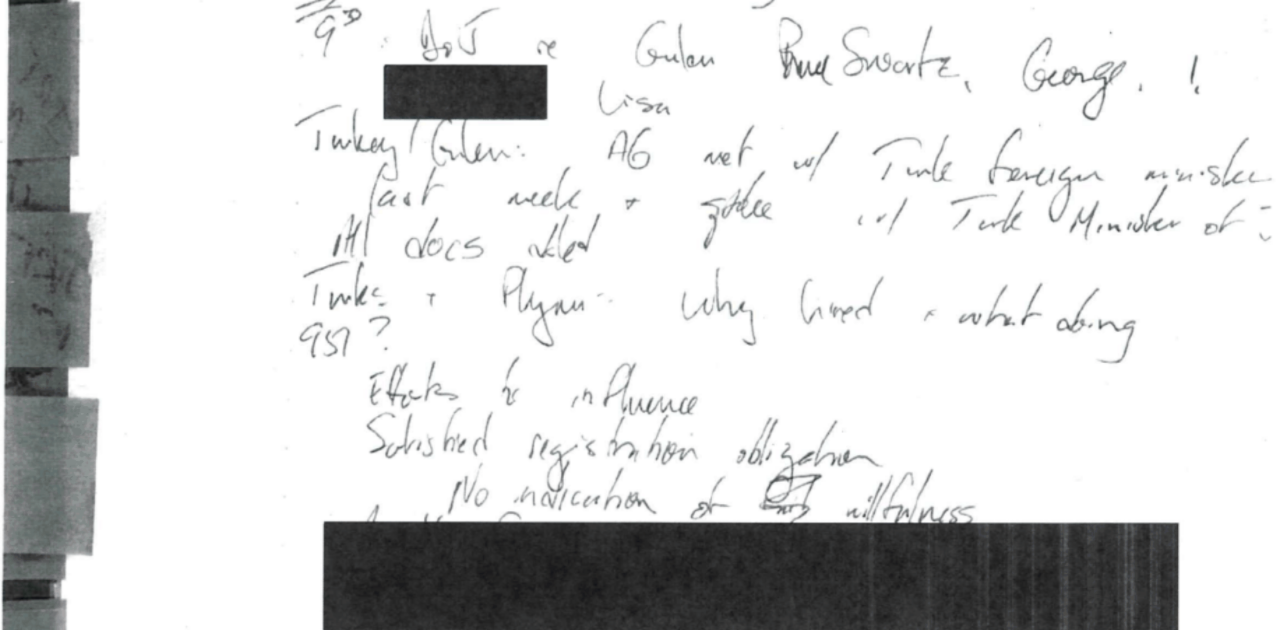 9³⁰ : DoJ re Gulen Bruce Swartz, George, !
Lisa
Turkey / Gulen: AG met w/ Turk foreign minister
last week + w/ Turk Minister of
All docs
Turks + Flynn: Why hired + what doing
951?
Efforts to influence
Satisfied registration obligation
No indication of willfulness